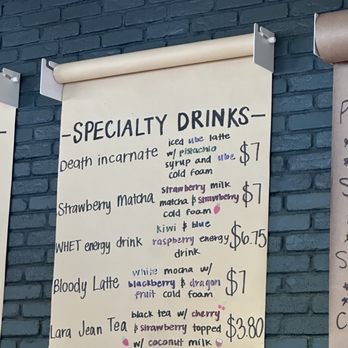 -SPECIALTY DRINKS-
Death incarnate iced ube latte w/ pistachio syrup and ube cold foam $7
Strawberry Matcha strawberry milk matcha & strawberry cold foam $7
WHET energy drink kiwi & blue raspberry energy drink $6.75
Bloody Latte white mocha w/ blackberry & dragon fruit cold foam $7
Lara Jean Tea black tea w/ cherry & strawberry topped w/ coconut milk $3.80